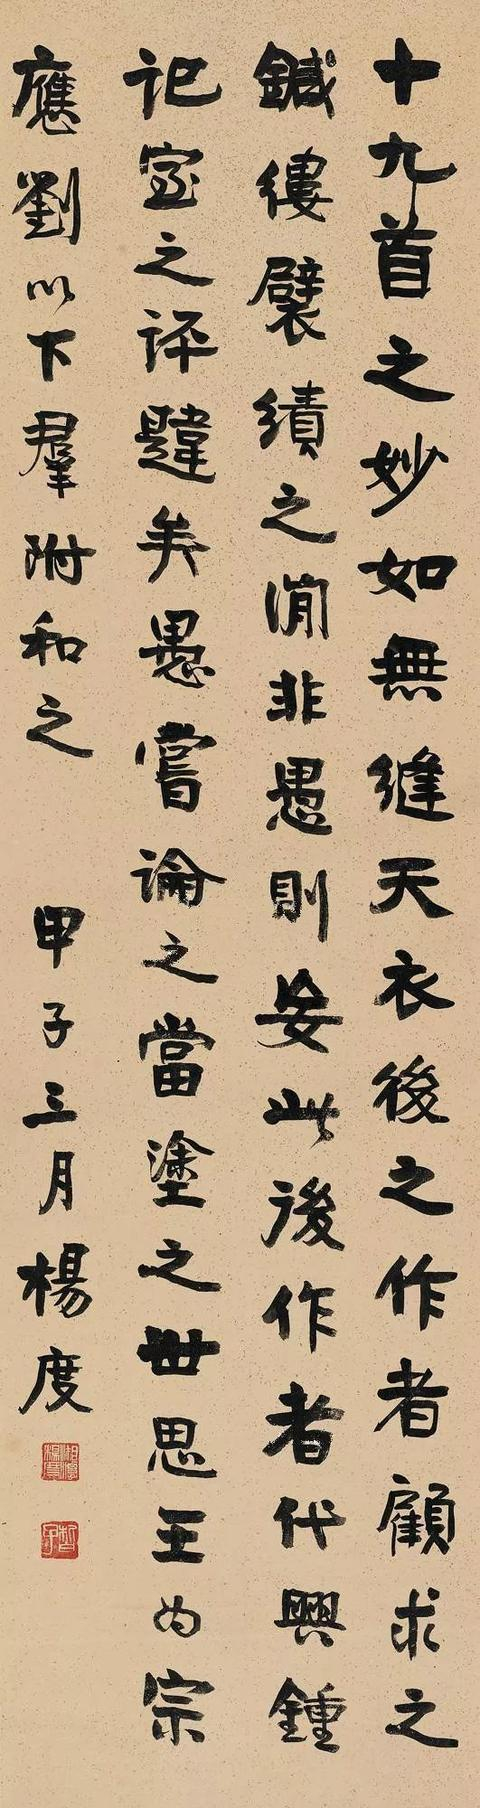 十九首之妙如無縫天衣後之作者顧求之
鍼縷襞績之間非愚則妄此後作者代興鍾
記室之評韙矣愚嘗論之當塗之世思王為宗
應劉以下羣附和之 甲子三月楊度